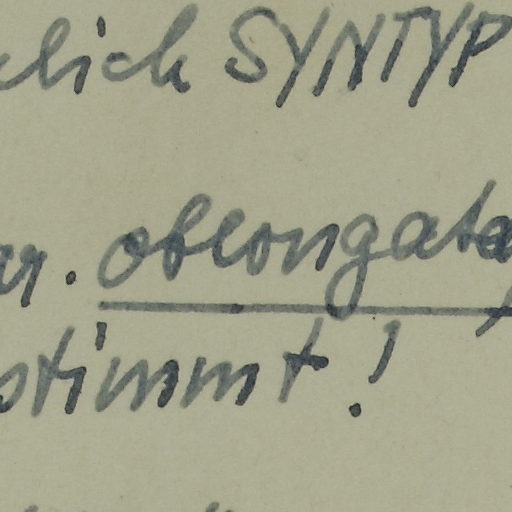 lich SYNTYP
ar. oblongata,
stimmt!